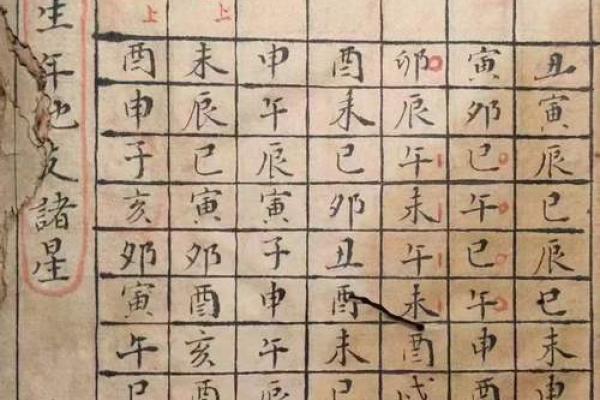 丑寅辰巳辰巳未申
寅卯巳午巳午申酉
卯辰午未午未酉戌
酉未巳卯丑酉未巳
申午辰寅子申午辰
上未辰巳寅卯酉亥酉
上酉申子亥卯寅午巳
生年地支諸星